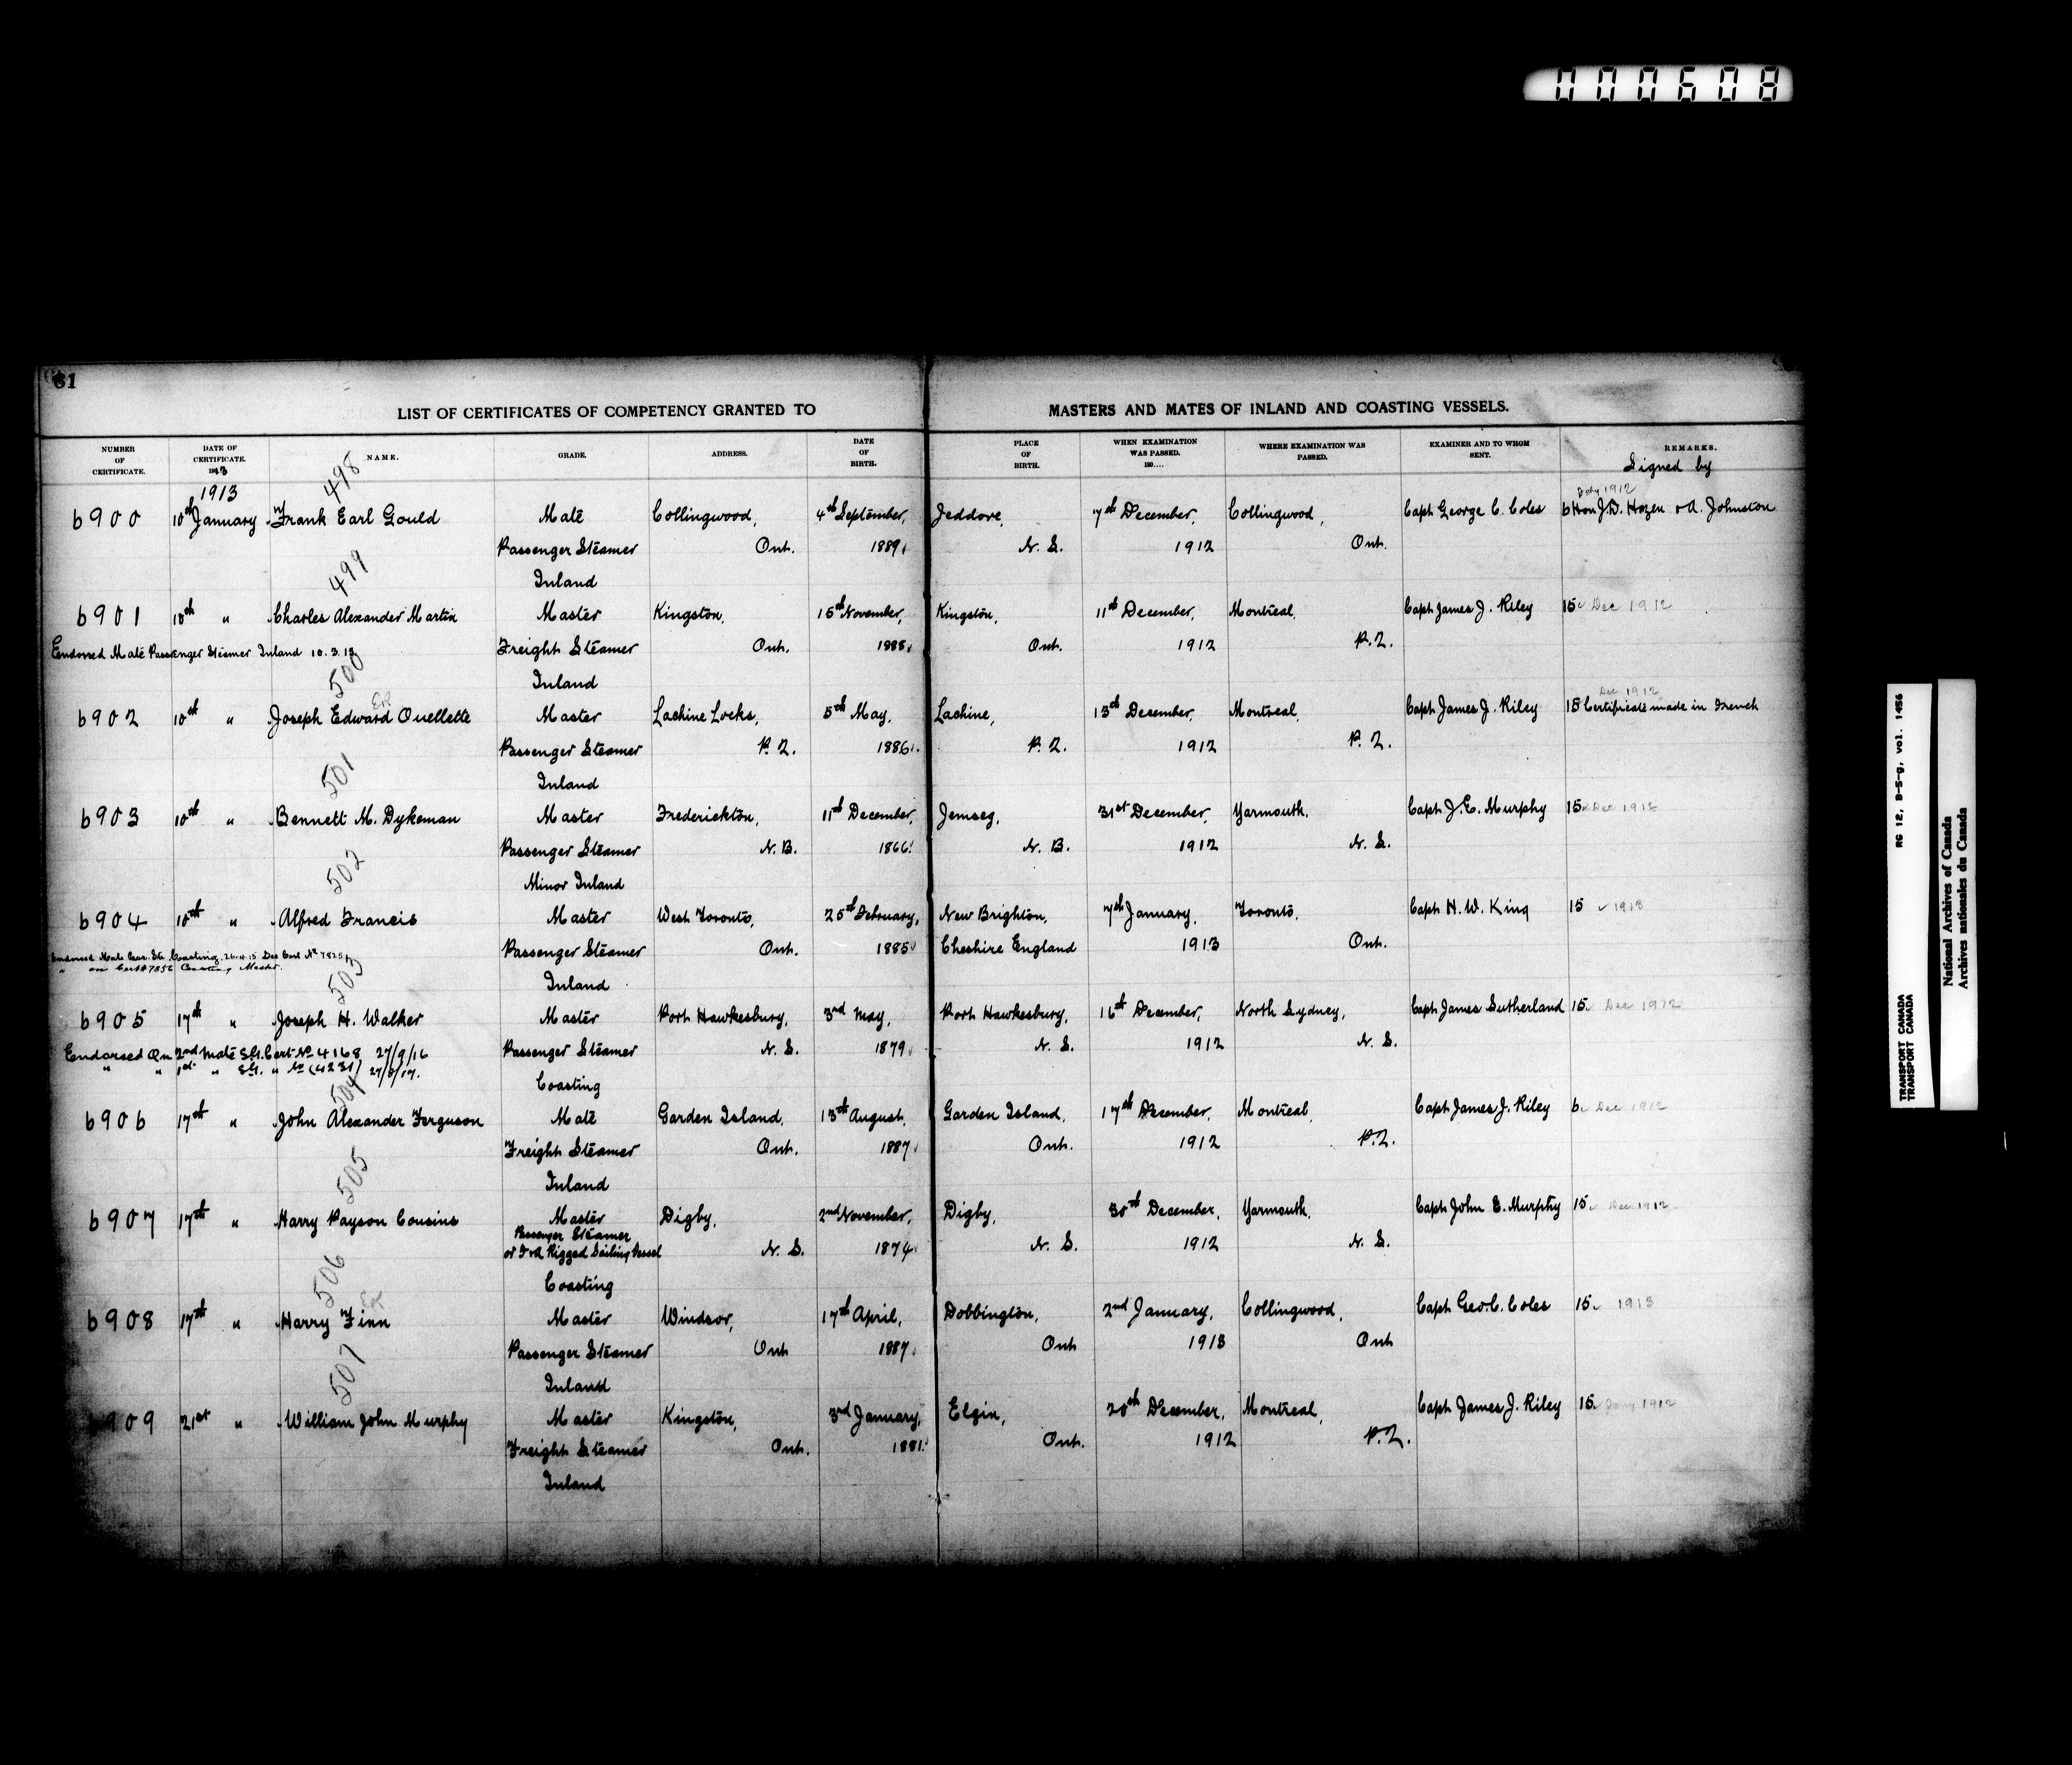 000608
61
LIST OF CERTIFICATES OF COMPETENCY GRANTED TO MASTERS AND MATES OF INLAND AND COASTING VESSELS.
NUMBER OF CERTIFICATE. DATE OF CERTIFICATE. 1913 NAME. GRADE. ADDRESS. DATE OF BIRTH. PLACE OF BIRTH. WHEN EXAMINATION WAS PASSED. 190.... WHERE EXAMINATION WAS PASSED. EXAMINER AND TO WHOM SENT. REMARKS.
Signed by
1913 498 1912
6900 10th January Frank Earl Gould Mate Collingwood, 4th September, Jeddore, 7th December, Collingwood, Capt George C. Coles 6 Hon J.D. Hazen & A. Johnston
Passenger Steamer Ont. 1889. N. S. 1912 Ont.
499 Inland
6901 10th " Charles Alexander Martin Master Kingston, 15th November, Kingston, 11th December, Montreal, Capt James J. Riley 15 Dec 1912
Endorsed Mate Passenger Steamer Inland 10.3.13 Freight Steamer Ont. 1888. Ont. 1912 P.Q.
500 Inland Dec 1912
6902 10th " Joseph Edward Ouellette Master Lachine Locks, 5th May, Lachine, 13th December, Montreal, Capt James J. Riley 15 Certificate made in French
Passenger Steamer P.Q. 1886. P.Q. 1912 P.Q.
501 Inland
6903 10th " Bennett M. Dykeman Master Frederickton, 11th December, Jemseg, 31st December, Yarmouth, Capt J. E. Murphy 15 Dec 1912
Passenger Steamer N. B. 1866. N. B. 1912 N. S.
502 Minor Inland
6904 10th " Alfred Francis Master West Toronto, 25th February, New Brighton, 7th January, Toronto, Capt H. W. King 15 1913
Passenger Steamer Ont. 1885 Cheshire England 1913 Ont.
Endorsed Mate Coasting 26.4.15
" on Cert # 7856 Coasting Master.
503 Inland
6905 17th " Joseph H. Walker Master Port Hawkesbury, 3rd May, Port Hawkesbury, 16th December, North Sydney, Capt James Sutherland 15 Dec 1912
Endorsed On 2nd Mate S.G. Cert No 4168 27/9/16 Passenger Steamer N. S. 1879. N. S. 1912 N. S.
" " 1st " S.G. " No (4231) 27/8/17.
504 Coasting
6906 17th " John Alexander Ferguson Mate Garden Island, 13th August, Garden Island, 17th December, Montreal, Capt James J. Riley 6 Dec 1912
Freight Steamer Ont. 1887. Ont. 1912 P.Q.
505 Inland
6907 17th " Harry Payson Cousins Master Digby, 2nd November, Digby, 30th December, Yarmouth, Capt John E. Murphy 15 Dec 1912
Passenger Steamer
or F & A Rigged Sailing Vessel N. S. 1874. N. S. 1912 N. S.
506 Coasting
6908 17th " Harry Finn Master Windsor, 17th April, Dobbington, 2nd January, Collingwood, Capt Geo. C. Coles 15 1913
Passenger Steamer Ont 1887. Ont 1913 Ont
507 Inland
6909 21st " William John Murphy Master Kingston, 3rd January, Elgin, 20th December, Montreal, Capt James J. Riley 15 1912
Freight Steamer Ont. 1881. Ont. 1912 P.Q.
Inland
TRANSPORT CANADA RG 12, B-5-g, vol. 1456
TRANSPORT CANADA
National Archives of Canada
Archives nationales du Canada